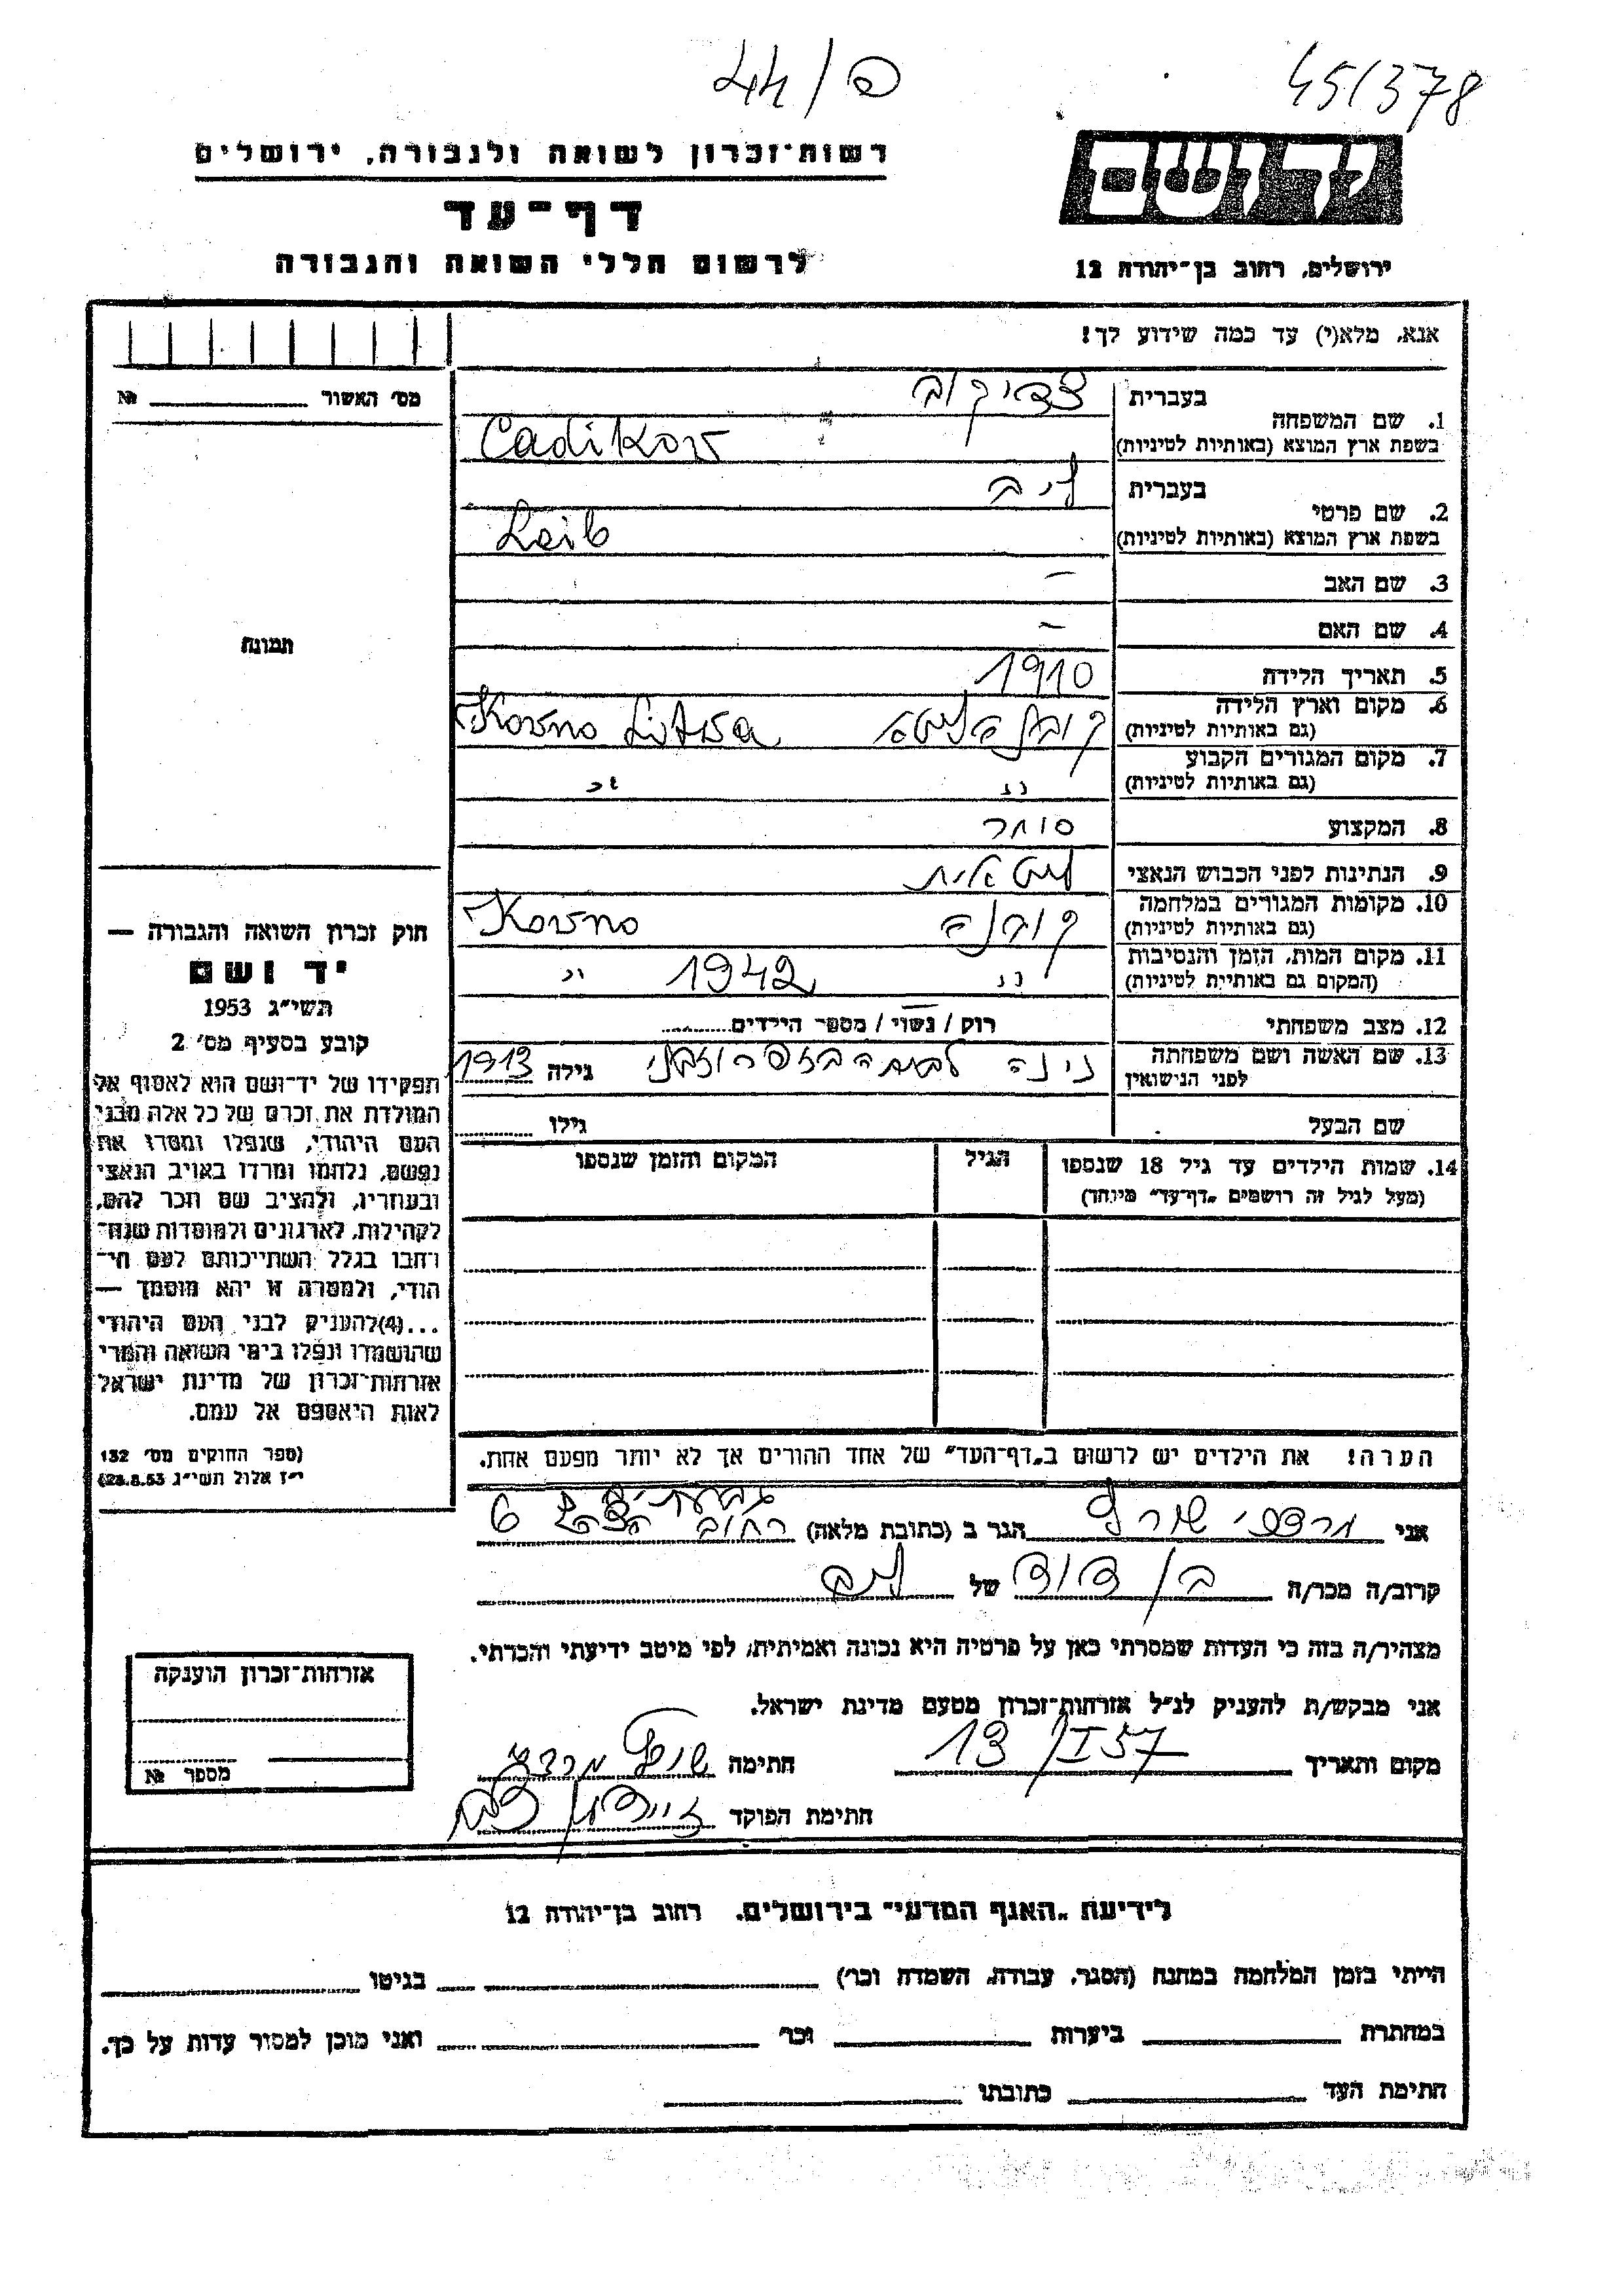 44/פ
45/378
יד ושם
רשות-זכרון לשואה ולגבורה, ירושלים
דף-עד
לרשום חללי השואה והגבורה
ירושלים, רחוב בן-יהודה 12
אנא, מלא(י) עד כמה שידוע לך!
מס' האשור №
תמונה
בעברית צדיקוב
1. שם המשפחה
בשפת ארץ המוצא (באותיות לטיניות) Cadikov
בעברית ליב
2. שם פרטי
בשפת ארץ המוצא (באותיות לטיניות) Leib
3. שם האב –
4. שם האם –
5. תאריך הלידה 1910
6. מקום וארץ הלידה
(גם באותיות לטיניות) Kovno Litva
7. מקום המגורים הקבוע
(גם באותיות לטיניות) " "
8. המקצוע סוחר
9. הנתינות לפני הכבוש הנאצי ליטאית
10. מקומות המגורים במלחמה
(גם באותיות לטיניות) קובנה Kovno
11. מקום המות, הזמן והנסיבות
(המקום גם באותיות לטיניות) " 1942 "
12. מצב משפחתי רוק / נשוי / מספר הילדים
13. שם האשה ושם משפחתה
לפני הנישואין נינה לבית גילה 1913
שם הבעל גילו
14. שמות הילדים עד גיל 18 שנספו הגיל המקום והזמן שנספו
(מעל לגיל זה רושמים „דף-עד" מיוחד)
הערה! את הילדים יש לרשום ב„דף-העד" של אחד ההורים אך לא יותר מפעם אחת.
חוק זכרון השואה והגבורה —
יד ושם
תשי"ג 1953
קובע בסעיף מס' 2
תפקידו של יד-ושם הוא לאסוף אל
המולדת את זכרם של כל אלה מבני
העם היהודי, שנפלו ומסרו את
נפשם, נלחמו ומרדו באויב הנאצי
ובעוזריו, ולהציב שם וזכר להם,
לקהילות, לארגונים ולמוסדות שנח-
רבו בגלל השתייכותם לעם הי-
הודי, ולמטרה זו יהא מוסמך —
...(4)להעניק לבני העם היהודי
שהושמדו ונפלו בימי השואה והמרי
אזרחות-זכרון של מדינת ישראל
לאות היאספם אל עמם.
(ספר החוקים מס' 132
י"ז אלול תשי"ג 28.8.53)
גבעתיים
אני מרדכי הגר ב (כתובת מלאה) רחוב 6
קרוב/ה מכר/ה בן דוד של ליב
מצהיר/ה בזה כי העדות שמסרתי כאן על פרטיה היא נכונה ואמיתית, לפי מיטב ידיעתי והכרתי.
אני מבקש/ת להעניק לנ"ל אזרחות-זכרון מטעם מדינת ישראל.
מקום ותאריך 13/I 57 חתימה
חתימת הפוקד
אזרחות-זכרון הוענקה
מספר №
לידיעת „האגף המדעי" בירושלים. רחוב בן-יהודה 12
הייתי בזמן המלחמה במחנה (הסגר, עבודה, השמדה וכו') בגיטו
במחתרת ביערות וכו' ואני מוכן למסור עדות על כך.
חתימת העד כתובתו